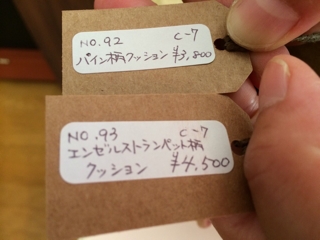 NO.92 C-7
パイン柄クッション ¥3,800
NO.93 C-7
エンゼルストランペット柄
クッション ¥4,500